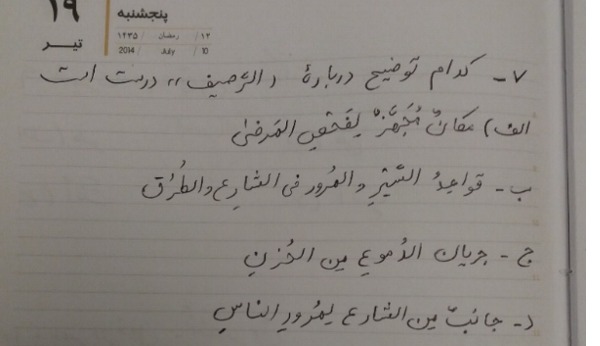 ۱۹
پنجشنبه
۱۲ / رمضان / ۱۴۳۵
تیر
2014 / July / 10
۷- کدام توضیح دربارهٔ «الرَّصیف» درست است
الف) مکانٌ مُجَهَّزٌ لِفَحْصِ المَرضیٰ
ب- قواعِدُ السَّیْرِ و المُرور فی الشارِعِ و الطُرُق
ج- جریان الدُموعِ مِن الحُزنِ
د- جانبٌ مِن الشارع لِمُرورِ الناسِ